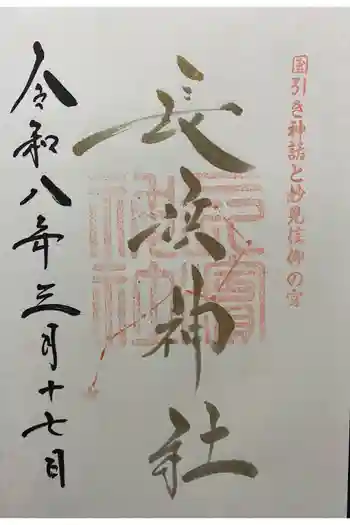 国引き神話と妙見信仰の宮
長浜神社
令和八年三月十七日